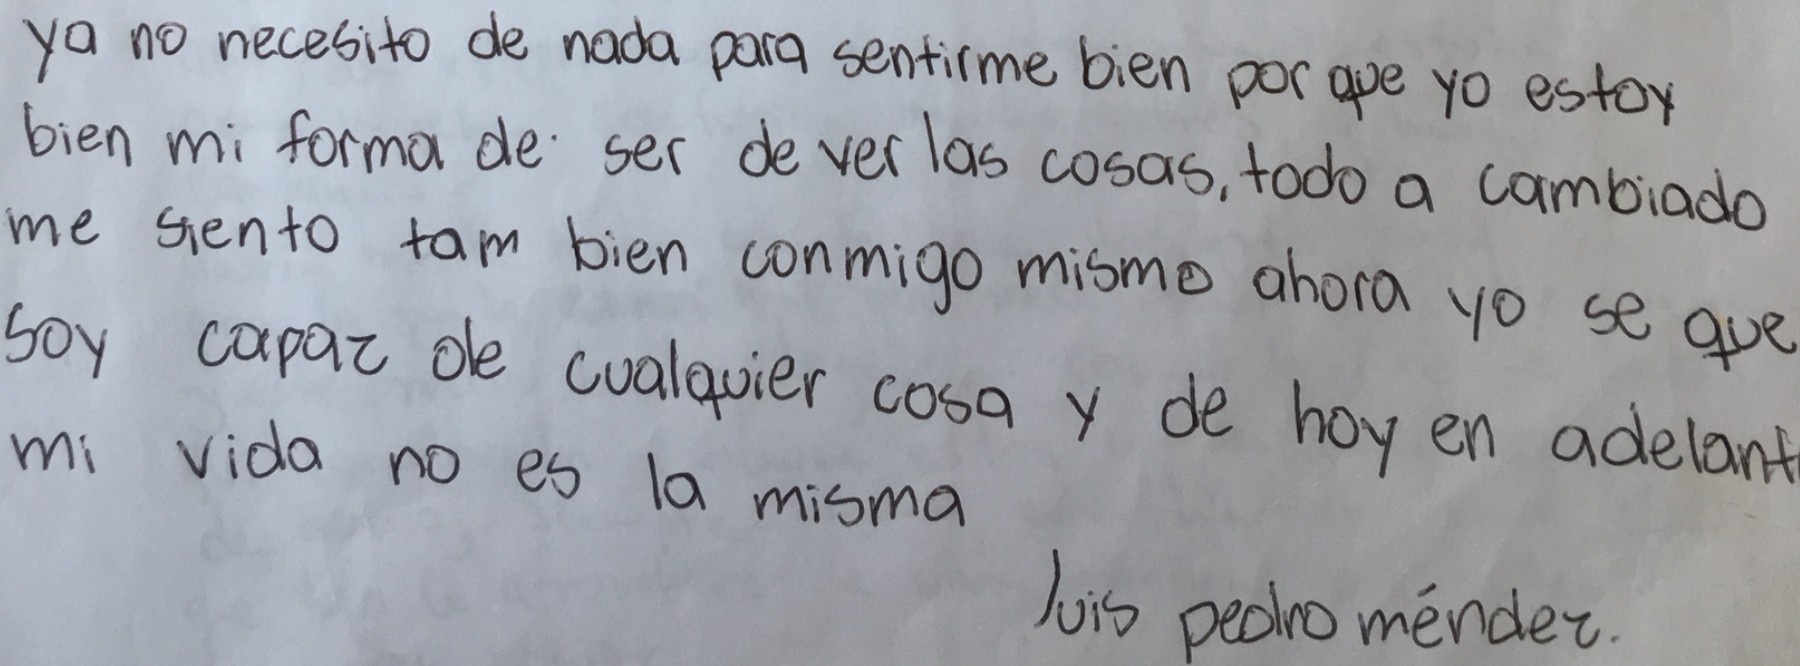 ya no necesito de nada para sentirme bien por que yo estoy
bien mi forma de ser de ver las cosas, todo a cambiado
me siento tam bien conmigo mismo ahora yo se que
soy capaz de cualquier cosa y de hoy en adelant
mi vida no es la misma
luis pedro méndez.